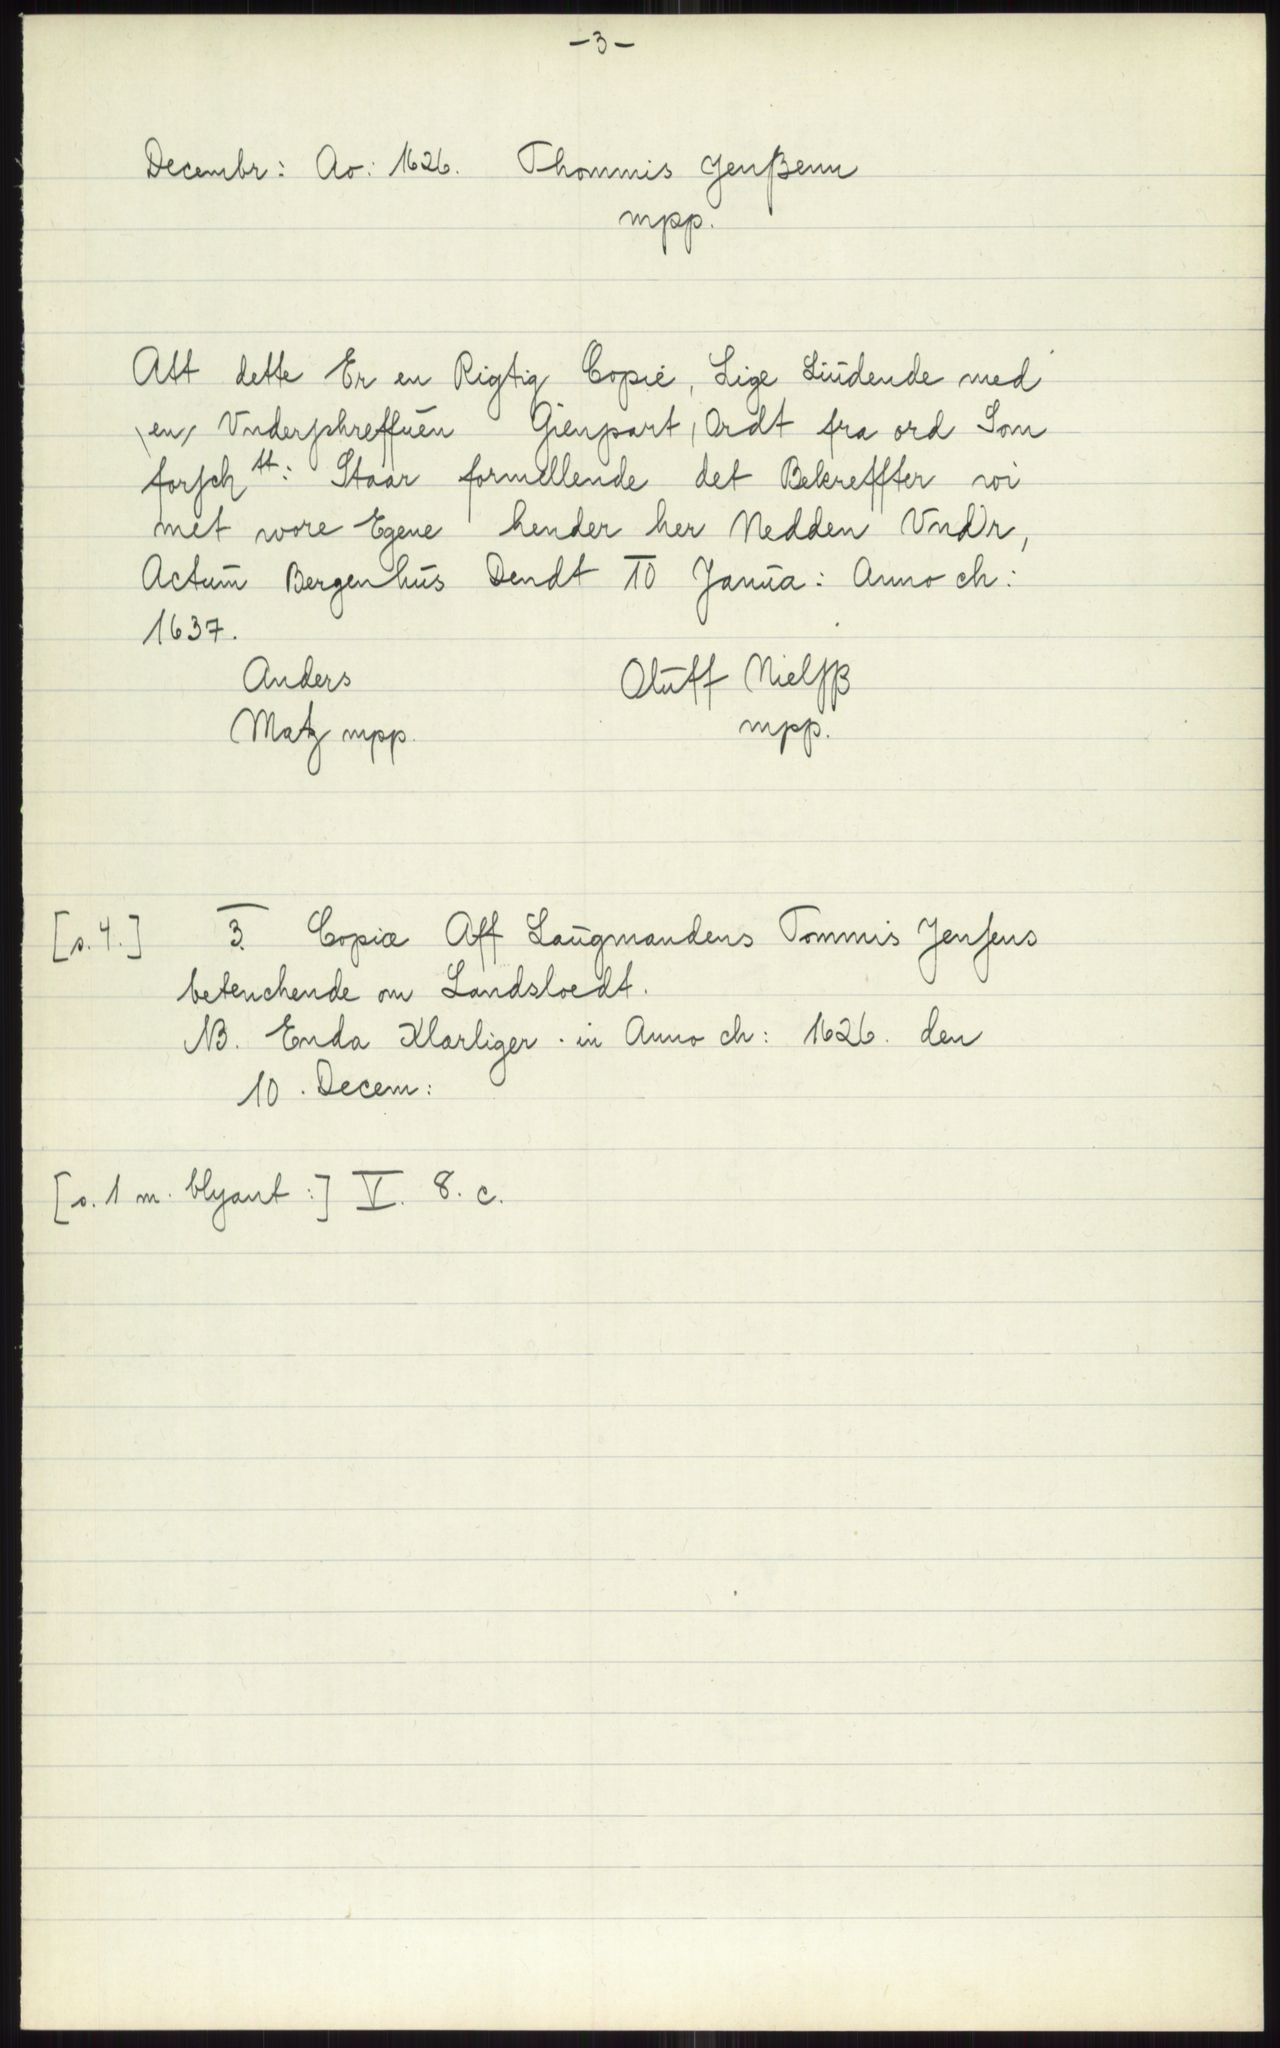 -3-
Decembr: Ao: 1626. Thommis Jenßenn
mpp.
Att dette Er en Rigtig Copie, Lige Lūdende med
\en/ Vnderschreffūen Gienpart, Ordt fra ord Som
forsch tt: Staar formellende det Bekreffter wi
met wore Egene hender her Nedden Vnd'r,
Actūm Bergenhūs Dendt 10 Janūa: Anno ch:
1637.
Anders Olūff Nielsß
Matz mpp. mpp.
[s. 4.] 3. Copiæ Aff Laūgmandens Tommis Jensens
betenchende om Landsloedt.
NB. Enda Klarliger. in Anno ch: 1626. den
10. Decem:
[s. 1 m. blyant:] V. 8. c.